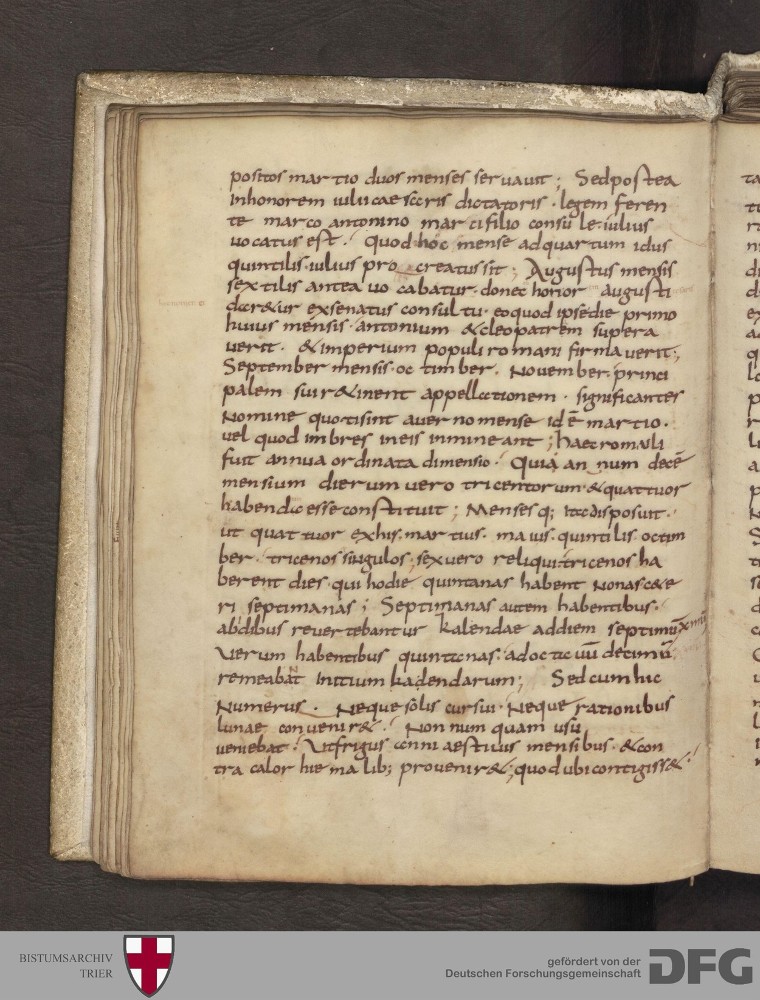 positos martio duos menses servavit; Sedpostea
inhonorem iulii caesaris dictatoris · legem feren
te marco antonino marci filio consule · iulius
vocatus est · quod hoc mense ad quartum idus
quintilis · iulius procreatus sit; Augustus mensis
sextilis antea vocabatur · donec honor augusti
dar&ur exsenatus consultu · eoquod ipsedie primo
huius mensis · antonium &cleopatrem supera
verit · &imperium populi romani firmaverit;
September mensis · octimber · November · princi
palem suir&inent appellationem · significantes
Nomine quotisint avernomense idē martio ·
vel quod imbres ineis inmineant; haecromuli
fuit annua ordinata dimensio · Quia annum decē
mensium dierum vero tricentorum · &quattuor
habendūesseconstituit; Mensesq; itadisposuit ·
ut quattuor exhis · martius · maius · quintilis octim
ber · tricenos singulos; sexvero reliquitricenos ha
berent dies · qui hodie quintanas habent Nonasc&e
ri septimanas; Septimanas autem habentibus ·
abidibus revertebantur kalendae addiem septimū xmū
Verum habentibus quintanas · adoctavū decimū
remeabat initium kalendarum; Sedcumhic
Numerus · Neque solis cursui · Neque rationibus
lunae convenir& · Nonnumquam usu
veniebat · Utfrigus anni aestivis mensibus · &con
tra calor hiemalib; provenir&; quodubicontigiss& ·
BISTUMSARCHIV
TRIER
gefördert von der
Deutschen Forschungsgemeinschaft
DFG